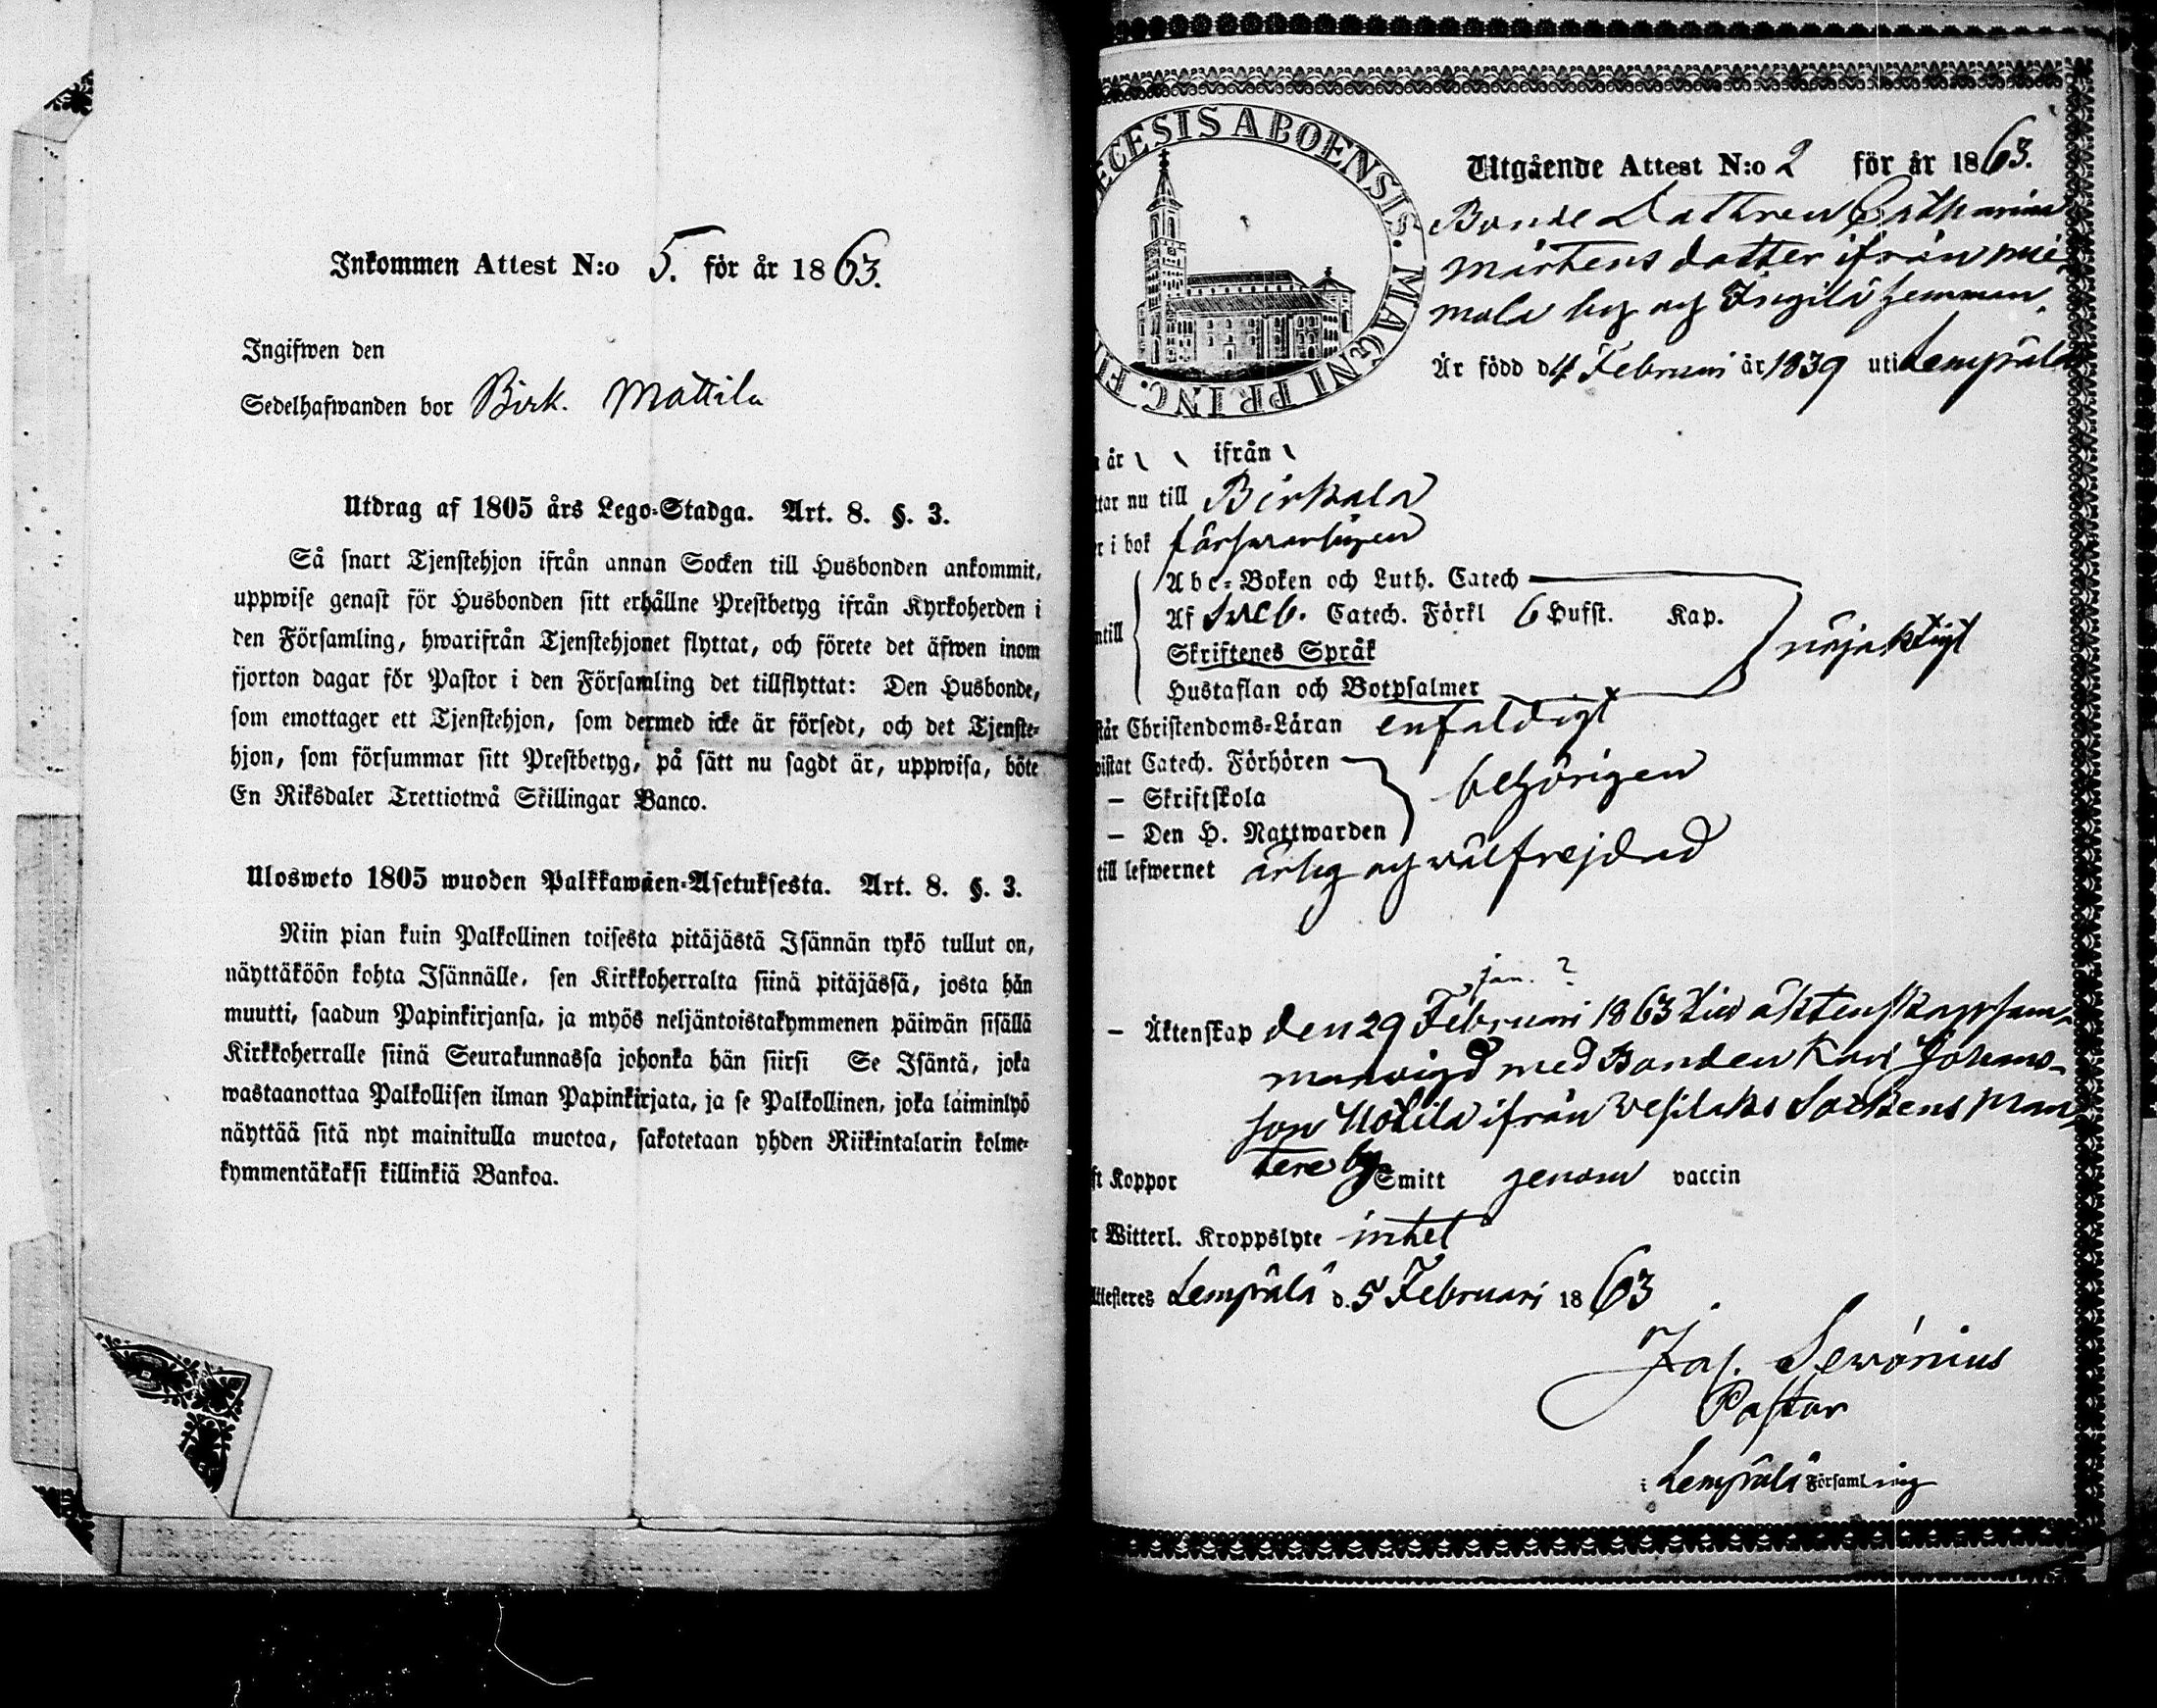 Inkommen Attest N:o 5. för år 1863.
Ingifwen den
Sedelhafwanden bor Birk. Mattila
Utdrag af 1805 års Lego-Stadga. Art. 8. §. 3.
Så snart Tjenstehjon ifrån annan Socken till Husbonden ankommit,
uppwise genast för Husbonden sitt erhållne Prestbetyg ifrån Kyrkoherden i
den Församling, hwarifrån Tjenstehjonet flyttat, och förete det äfwen inom
fjorton dagar för Pastor i den Församling det tillflyttat: Den Husbonde,
som emottager ett Tjenstehjon, som dermed icke är försedt, och det Tjenste-
hjon, som försummar sitt Prestbetyg, på sätt nu sagdt är, uppwisa, böte
En Riksdaler Trettiotwå Skillingar Banco.
Ulosweto 1805 wuoden Palkkawäen-Asetuksesta. Art. 8. §. 3.
Niin pian kuin Palkollinen toisesta pitäjästä Isännän tykö tullut on,
näyttäköön kohta Isännälle, sen Kirkkoherralta siinä pitäjässä, josta hän
muutti, saadun Papinkirjansa, ja myös neljäntoistakymmenen päiwän sisällä
Kirkkoherralle siinä Seurakunnassa johonka hän siirsi Se Isäntä, joka
wastaanottaa Palkollisen ilman Papinkirjata, ja se Palkollinen, joka laiminlyö
näyttää sitä nyt mainitulla muotoa, sakotetaan yhden Riikintalarin kolme-
kymmentäkaksi killinkiä Bankoa.
ECESIS ABOENSIS. MAGNI PRINC. FI
Utgående Attest N:o 2 för år 1863.
Bonde Dottren Catharina
Mårtens dotter ifrån
mala by og hemman.
Är född d. 4 Februari år 1839 uti Lempälä
år ifrån
tar nu till Birkala
i bok försvarligen
Abc-Boken och Luth. Catech
Af Sveb. Catech. Förkl 6 Hufst. Kap.
ntill
Skriftenes Språk
nöjaktigt
Hustaflan och Botpsalmer
står Christendoms-Läran enfaldigt
wistat Catech. Förhören
— Skriftskola
behörigen
— Den H. Nattwarden
till lefwernet ärlig og välfrejdad
jan. ?
— Äktenskap den 29 Februari 1863 till äktenskap sam-
manvigd med Bonden Karl Johans-
son ifrån Vesilaks Sockens Man-
tere by
ft Koppor Smitt genom vaccin
r Witterl. Kroppslyte intet
Attesteres Lempälä d. 5 Februari 1863
Jos. Sevonius
Pastor
i Lempälä Församling